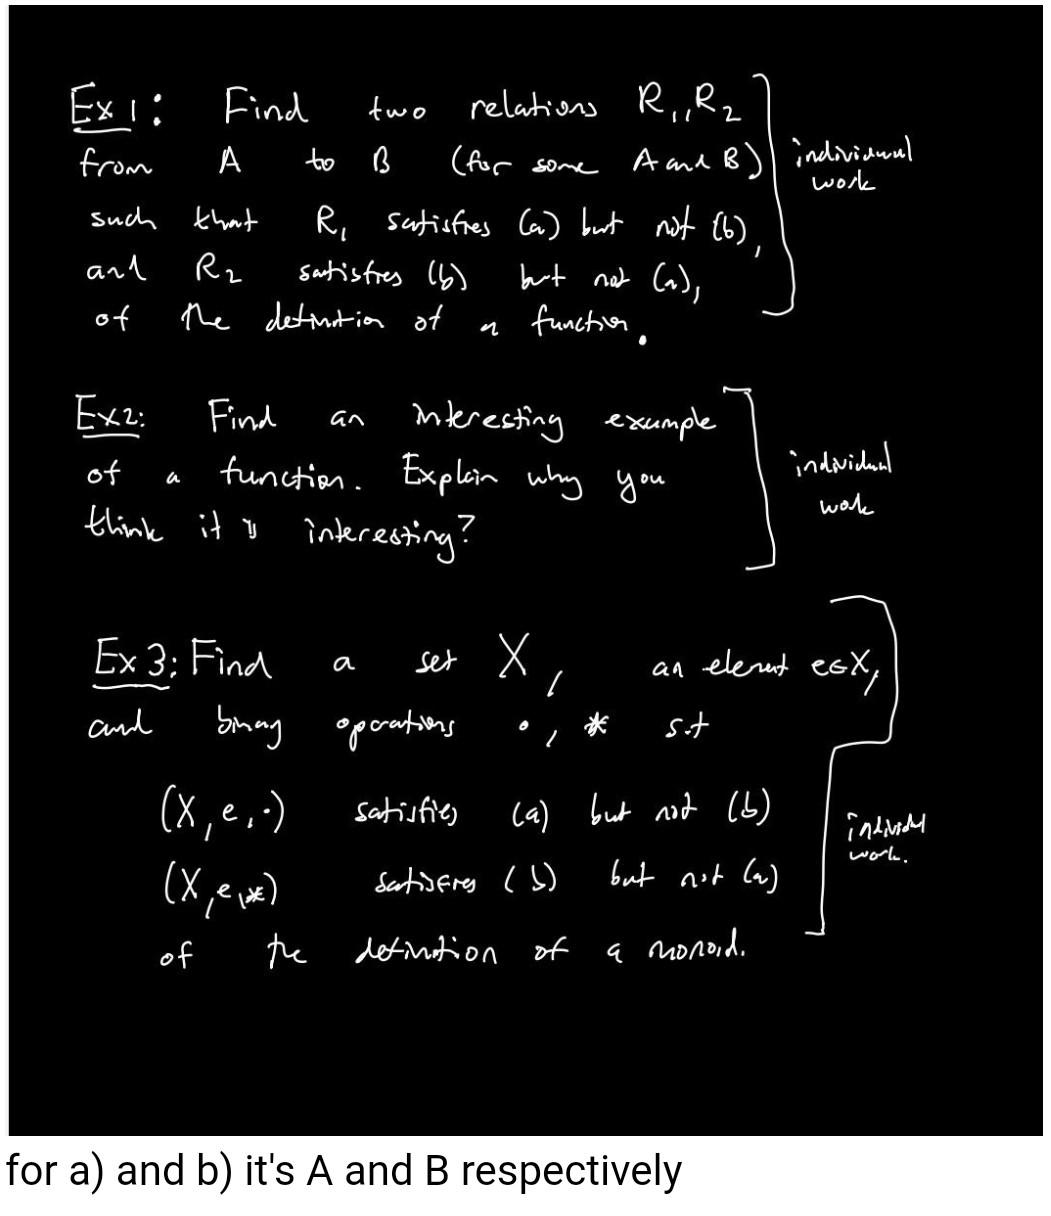 Ex 1: Find two relations R₁, R₂
from A to B (for some A and B)
such that R₁ satisfies (a) but not (b),
and R₂ satisfies (b) but not (a),
of the definition of a function.
individual
work
Ex2: Find an interesting example
of a function. Explain why you
think it is interesting?
individual
work
Ex 3: Find a set X, an element e∈X,
and binary operations ·, * s.t
(X, e, ·) satisfies (a) but not (b)
(X, e, *) satisfies (b) but not (a)
of the definition of a monoid.
individual
work.
for a) and b) it's A and B respectively